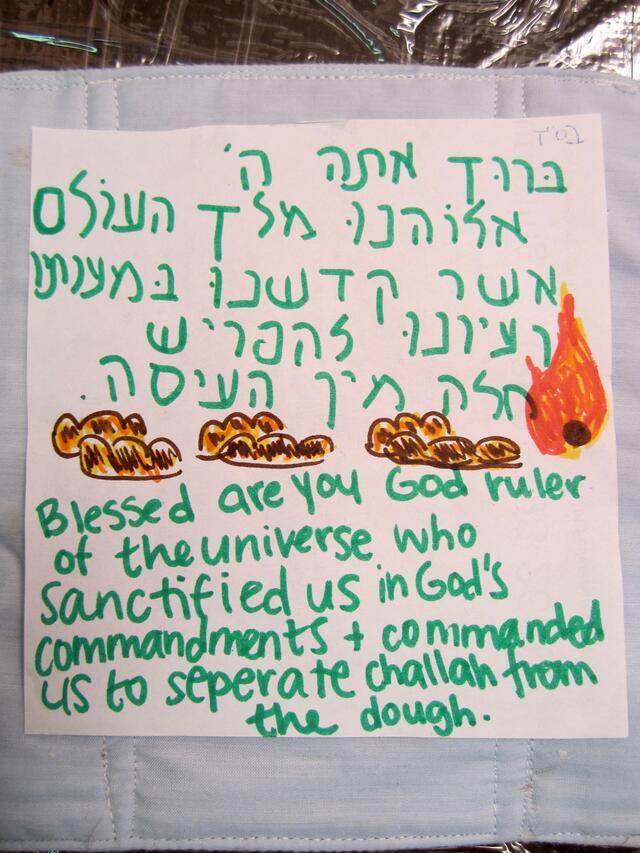 בס"ד
בּרוּך אתה ה'
אלוֹהנוּ מלך העוֹלם
אשר קדשנוּ בּמצותו
וציונוּ להפריש
חלה מין העיסה.
Blessed are you God ruler
of the universe who
sanctified us in God's
commandments + commanded
us to seperate challah from
the dough.